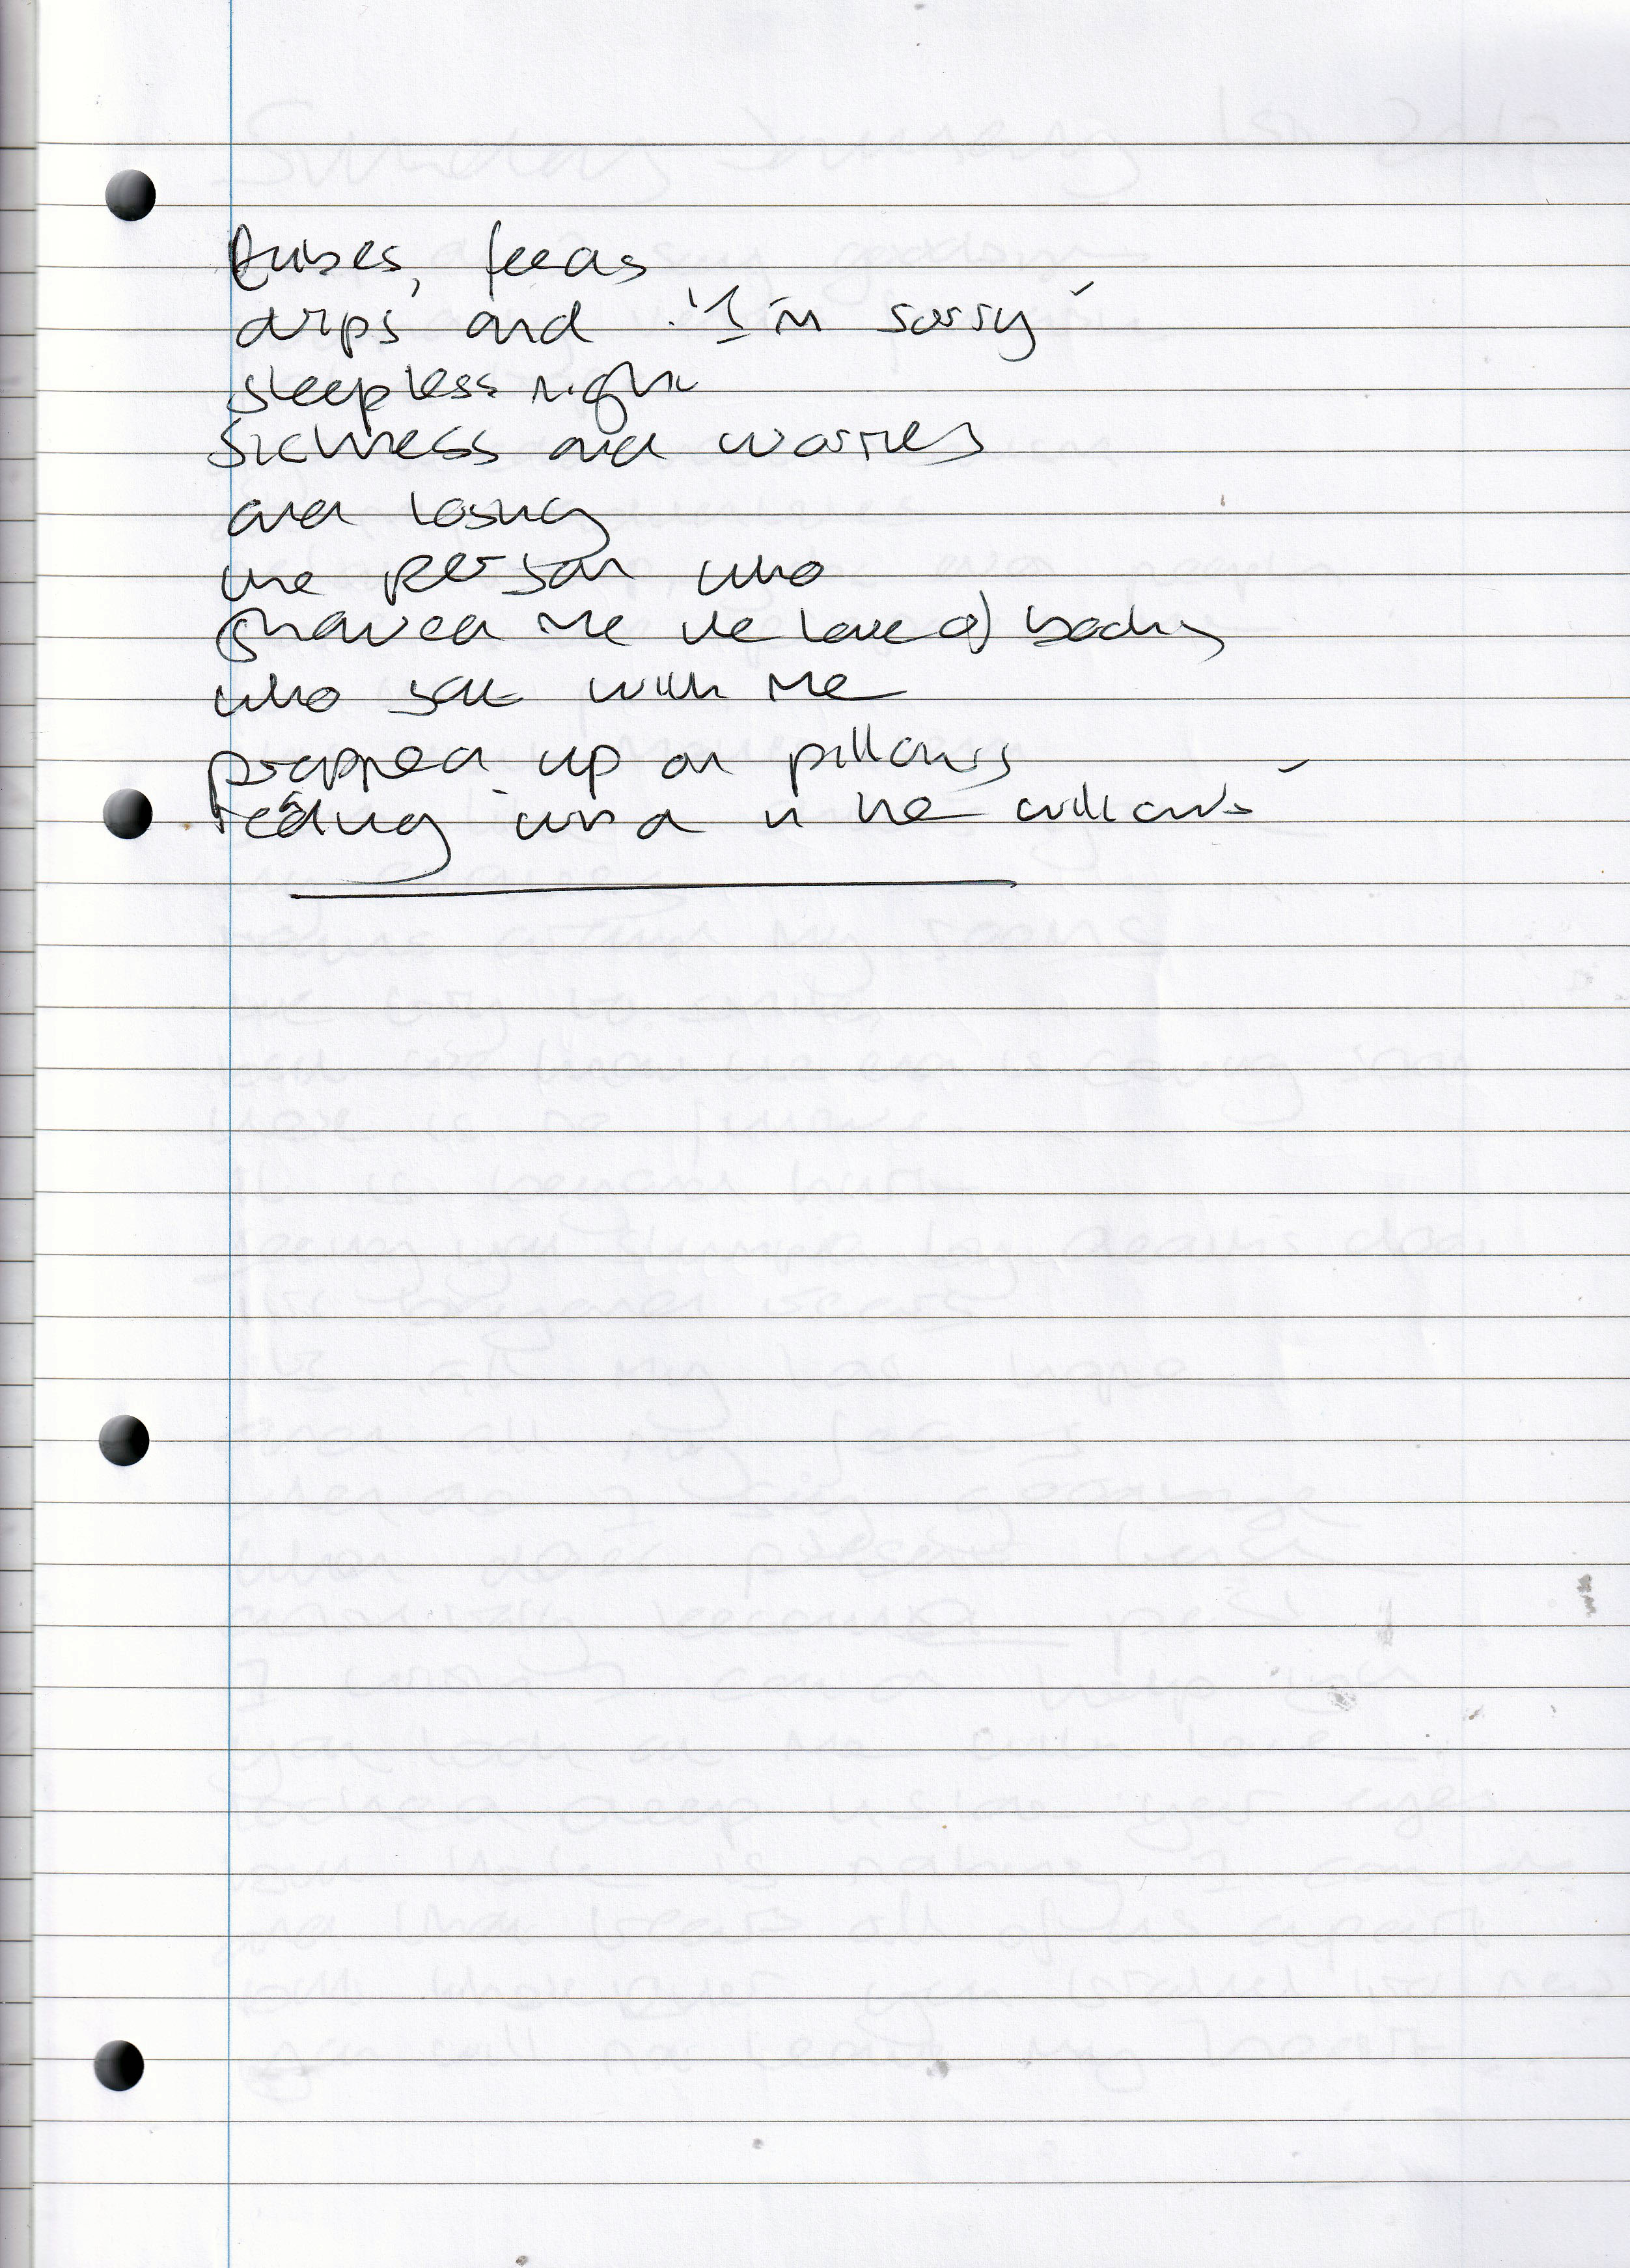 Tubes, feeds
drips and "I'm sorry"
sleepless night
sickness and worries
and losing
the person who
shared me the love of books
who sat with me
propped up on pillows
reading 'wind in the willows'